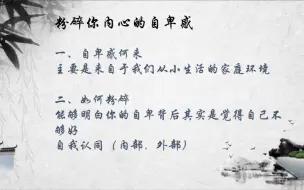 粉碎你内心的自卑感
一、自卑感何来
主要是来自于我们从小生活的家庭环境
二、如何粉碎
能够明白你的自卑背后其实是觉得自己不
够好
自我认同（内部、外部）